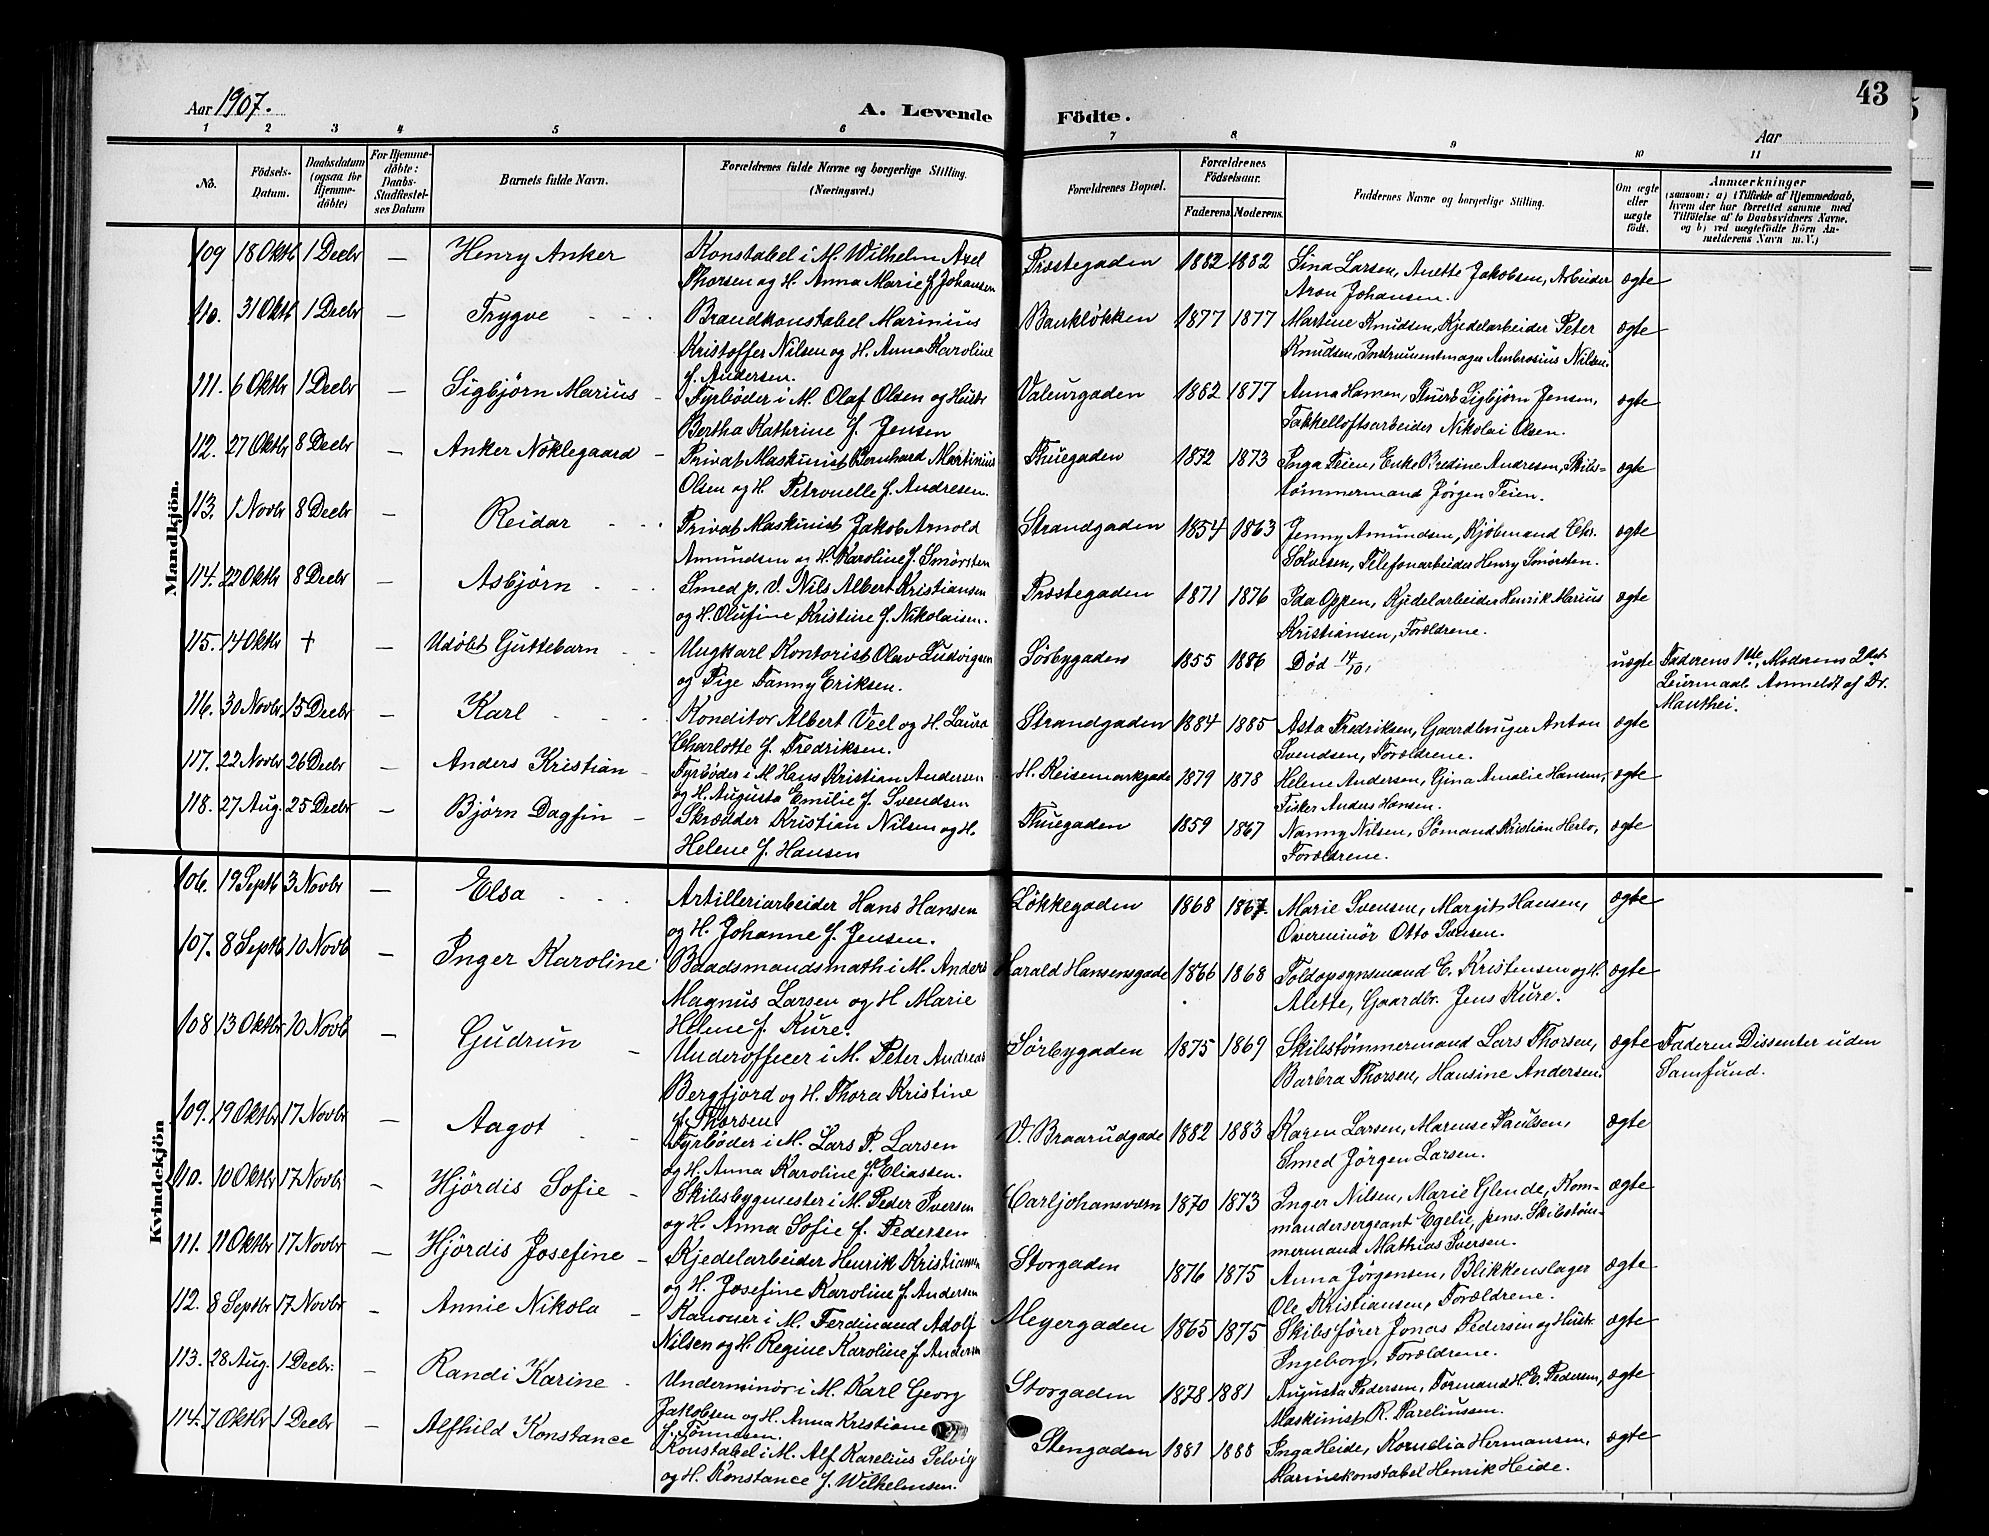 43
Aar 1907.
A. Levende
Födte.
Aar
1 2 3 4 5 6 7 8 9 10 11
No.
Födsels-Datum.
Daabsdatum (ogsaa for Hjemme-döbte)
For Hjemme-döbte: Daabs-Stadfæstel-ses Datum
Barnets fulde Navn.
Forældrenes fulde Navne og borgerlige Stilling. (Næringsvei.)
Forældrenes Bopæl.
Forældrenes Födselsaar.
Faderens. Moderens.
Faddernes Navne og borgerlige Stilling.
Om ægte eller uægte födt.
Anmærkninger
(saasom: a) i Tilfælde af Hjemmedaab,
hvem der har forrettet samme med
Tilföielse af to Daabsvidners Navne.
og b) ved uægtefödte Börn An-
melderens Navn m. V.)
Mandkjön.
109 18 Oktb 1 Decbr — Henry Anker Konstabel i M. Wilhelm Axel Præstegaden 1882 1882 Lina Larsen, Anette Jakobsen, Arbeider ægte
Thorsen og H. Anna Marie f. Johansen Aron Johansen.
110. 31 Oktb 1 Decbr — Trygve Brandkonstabel Marinius Bankløkken 1877 1877 Martine Knudsen, Kjedelarbeider Peter ægte
Kristoffer Nilsen og H. Anna Karoline Knudsen, Instrumentmager Ambrosius Nilsen.
f. Andersen.
111. 6 Oktbr 1 Decbr — Sigbjörn Marius Fyrbøder i M. Olaf Olsen og Hustr Valeurgaden 1882 1877 Anna Hansen, Stuert Sigbjörn Jensen, ægte
Bertha Kathrine f. Jensen Takkelloftsarbeider Nikolai Olsen.
112. 27 Oktbr 8 Decbr — Anker Nöklegaard Privat Maskinist Bernhard Martinius Thuegaden 1872 1873 Inga Teien, Enke Bredine Andresen, Skibs- ægte
Olsen og H. Petronelle f. Andresen. tömmermand Jørgen Teien.
113. 1 Novbr 8 Decbr — Reidar Privat Maskinist Jakob Arnold Strandgaden 1854 1863 Jenny Amundsen, Kjöbmand Chr. ægte
Amundsen og H. Karoline f. Smörsten Solvesen, Telefonarbeider Henry Smörsten.
114. 22 Oktbr 8 Decbr — Asbjörn Smed p. V. Nils Albert Kristiansen Præstegaden 1871 1876 Ida Oppen, Kjedelarbeider Henrik Marius ægte
og H. Olufine Kristine f. Nikolaisen. Kristiansen, Forældrene.
115. 14 Oktbr + — Udöbt Guttebarn Ungkarl Kontorist Olav Ludvigsen Sörbygaden 1855 1886 Död 14/10. uægte Faderens 1ste, Moderens 2det
og Pige Fanny Eriksen. Leiermaal. Anmeldt af Dr.
Manthei.
116. 30 Novbr 15 Decbr — Karl Konditor Albert Veel og H. Laura Strandgaden 1884 1885 Asta Fredriksen, Gaardbruger Anton ægte
Charlotte f. Fredriksen. Svendsen, Forældrene.
117. 22 Novbr 26 Decbr — Anders Kristian Fyrbøder i M Hans Kristian Andersen H. Keisemarkgade 1879 1878 Helene Andersen, Gina Amalie Hansen, ægte
og H. Augusta Emilie f. Svendsen Fisker Anders Hansen.
118. 27 Aug. 25 Decbr — Björn Dagfin Skrædder Kristian Nilsen og H. Thuegaden 1859 1867 Nanny Nilsen, Sömand Kristian Herlo, ægte
Helene f. Hansen Forældrene.
Kvindekjön
106. 19 Septb 3 Novbr — Elsa Artilleriarbeider Hans Hansen Løkkegaden 1868 1867. Marie Svensen, Margit Hansen, ægte
og H. Johanne f. Jensen. Overminör Otto Svensen.
107. 8 Septb 10 Novb — Inger Karoline Baadsmandsmath i M. Anders Harald Hansensgade 1866 1868 Toldopsynsmand E. Kristensen og H. ægte
Magnus Larsen og H Marie Alette, Gaardbr. Jens Kure.
Helene f. Kure.
108 13 Oktbr 10 Novb — Gudrun Underofficer i M. Peter Andreas Sörbygaden 1875 1869 Skibstömmermand Lars Thorsen, ægte Faderen Dissenter uden
Bergfjord og H. Thora Kristine Barbra Thorsen, Hansine Andersen. Samfund.
f. Thorsen
109. 19 Oktbr 17 Novbr — Aagot Fyrbøder i M. Lars P. Larsen V. Braarudgade 1882 1883 Karen Larsen, Marense Paulsen, ægte
og H. Anna Karoline f. Eliassen. Smed Jørgen Larsen.
110. 10 Oktbr 17 Novbr — Hjördis Sofie Skibsbygmester i M. Peder Iversen Carljohansværn 1870 1873 Inger Nilsen, Marie Glende, Kom- ægte
og H. Anna Sofie f. Pedersen mandersergeant Egelie, pens. Skibstöm-
mermand Mathias Iversen.
111. 11 Oktbr 17 Novbr — Hjördis Josefine Kjedelarbeider Henrik Kristiansen Storgaden 1876 1875 Anna Jörgensen, Blikkenslager ægte
og H. Josefine Karoline f. Andersen Ole Kristiansen, Forældrene.
112. 8 Septbr 17 Novbr — Annie Nikola Kanoner i M. Ferdinand Adolf Meyergaden 1865 1875 Skibsfører Jonas Pedersen og Hustr ægte
Nilsen og H Regine Karoline f. Andersen Ingeborg, Forældrene.
113. 28 Aug. 1 Decbr. — Randi Karine Underminör i M. Karl Georg Storgaden 1878 1881 Augusta Pedersen, Formand H. E. Pedersen, ægte
Jakobsen og H. Anna Kristiane Maskinist R. Pareliussen.
f. Tönnesen.
114. 7 Oktbr 1 Decbr — Alfhild Konstance Konstabel i M. Alf Karelius Selvig Stengaden 1881 1888 Inga Heide, Kornelia Hermansen, ægte
og H. Konstance f. Wilhelmsen. Marinekonstabel Henrik Heide.